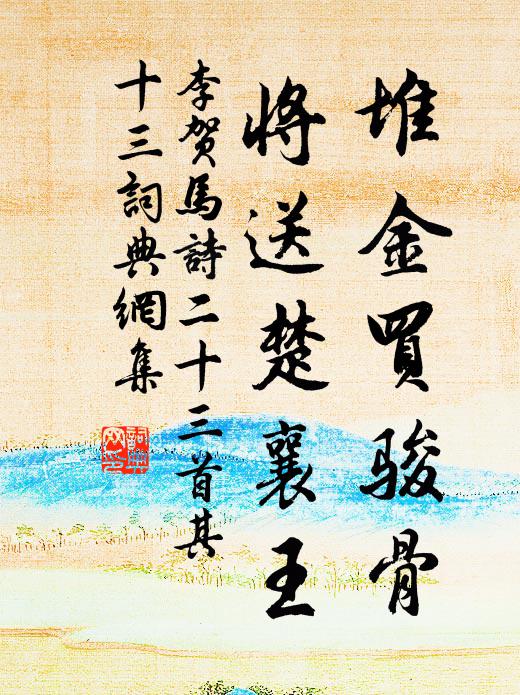 堆金買骏骨
將送楚襄王
李贺馬詩二十三首其
十三詞典網集